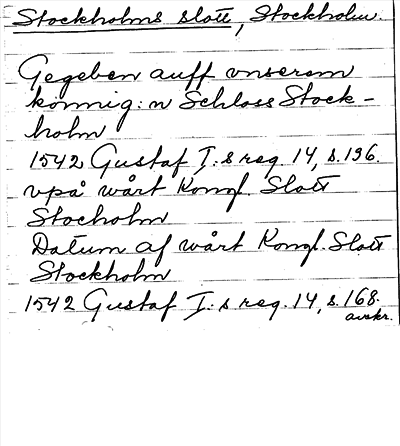 Stockholms slott, Stockholm.
Gegeben auff vnserem
könnig:n Schloss Stock-
holm
1542 Gustaf I:s reg. 14, s. 196.
vpå wårt Kongl. Slott
Stocholm
Datum af wårt Kongl. Slott
Stockholm
1542 Gustaf I:s reg. 14, s. 168.
avskr.